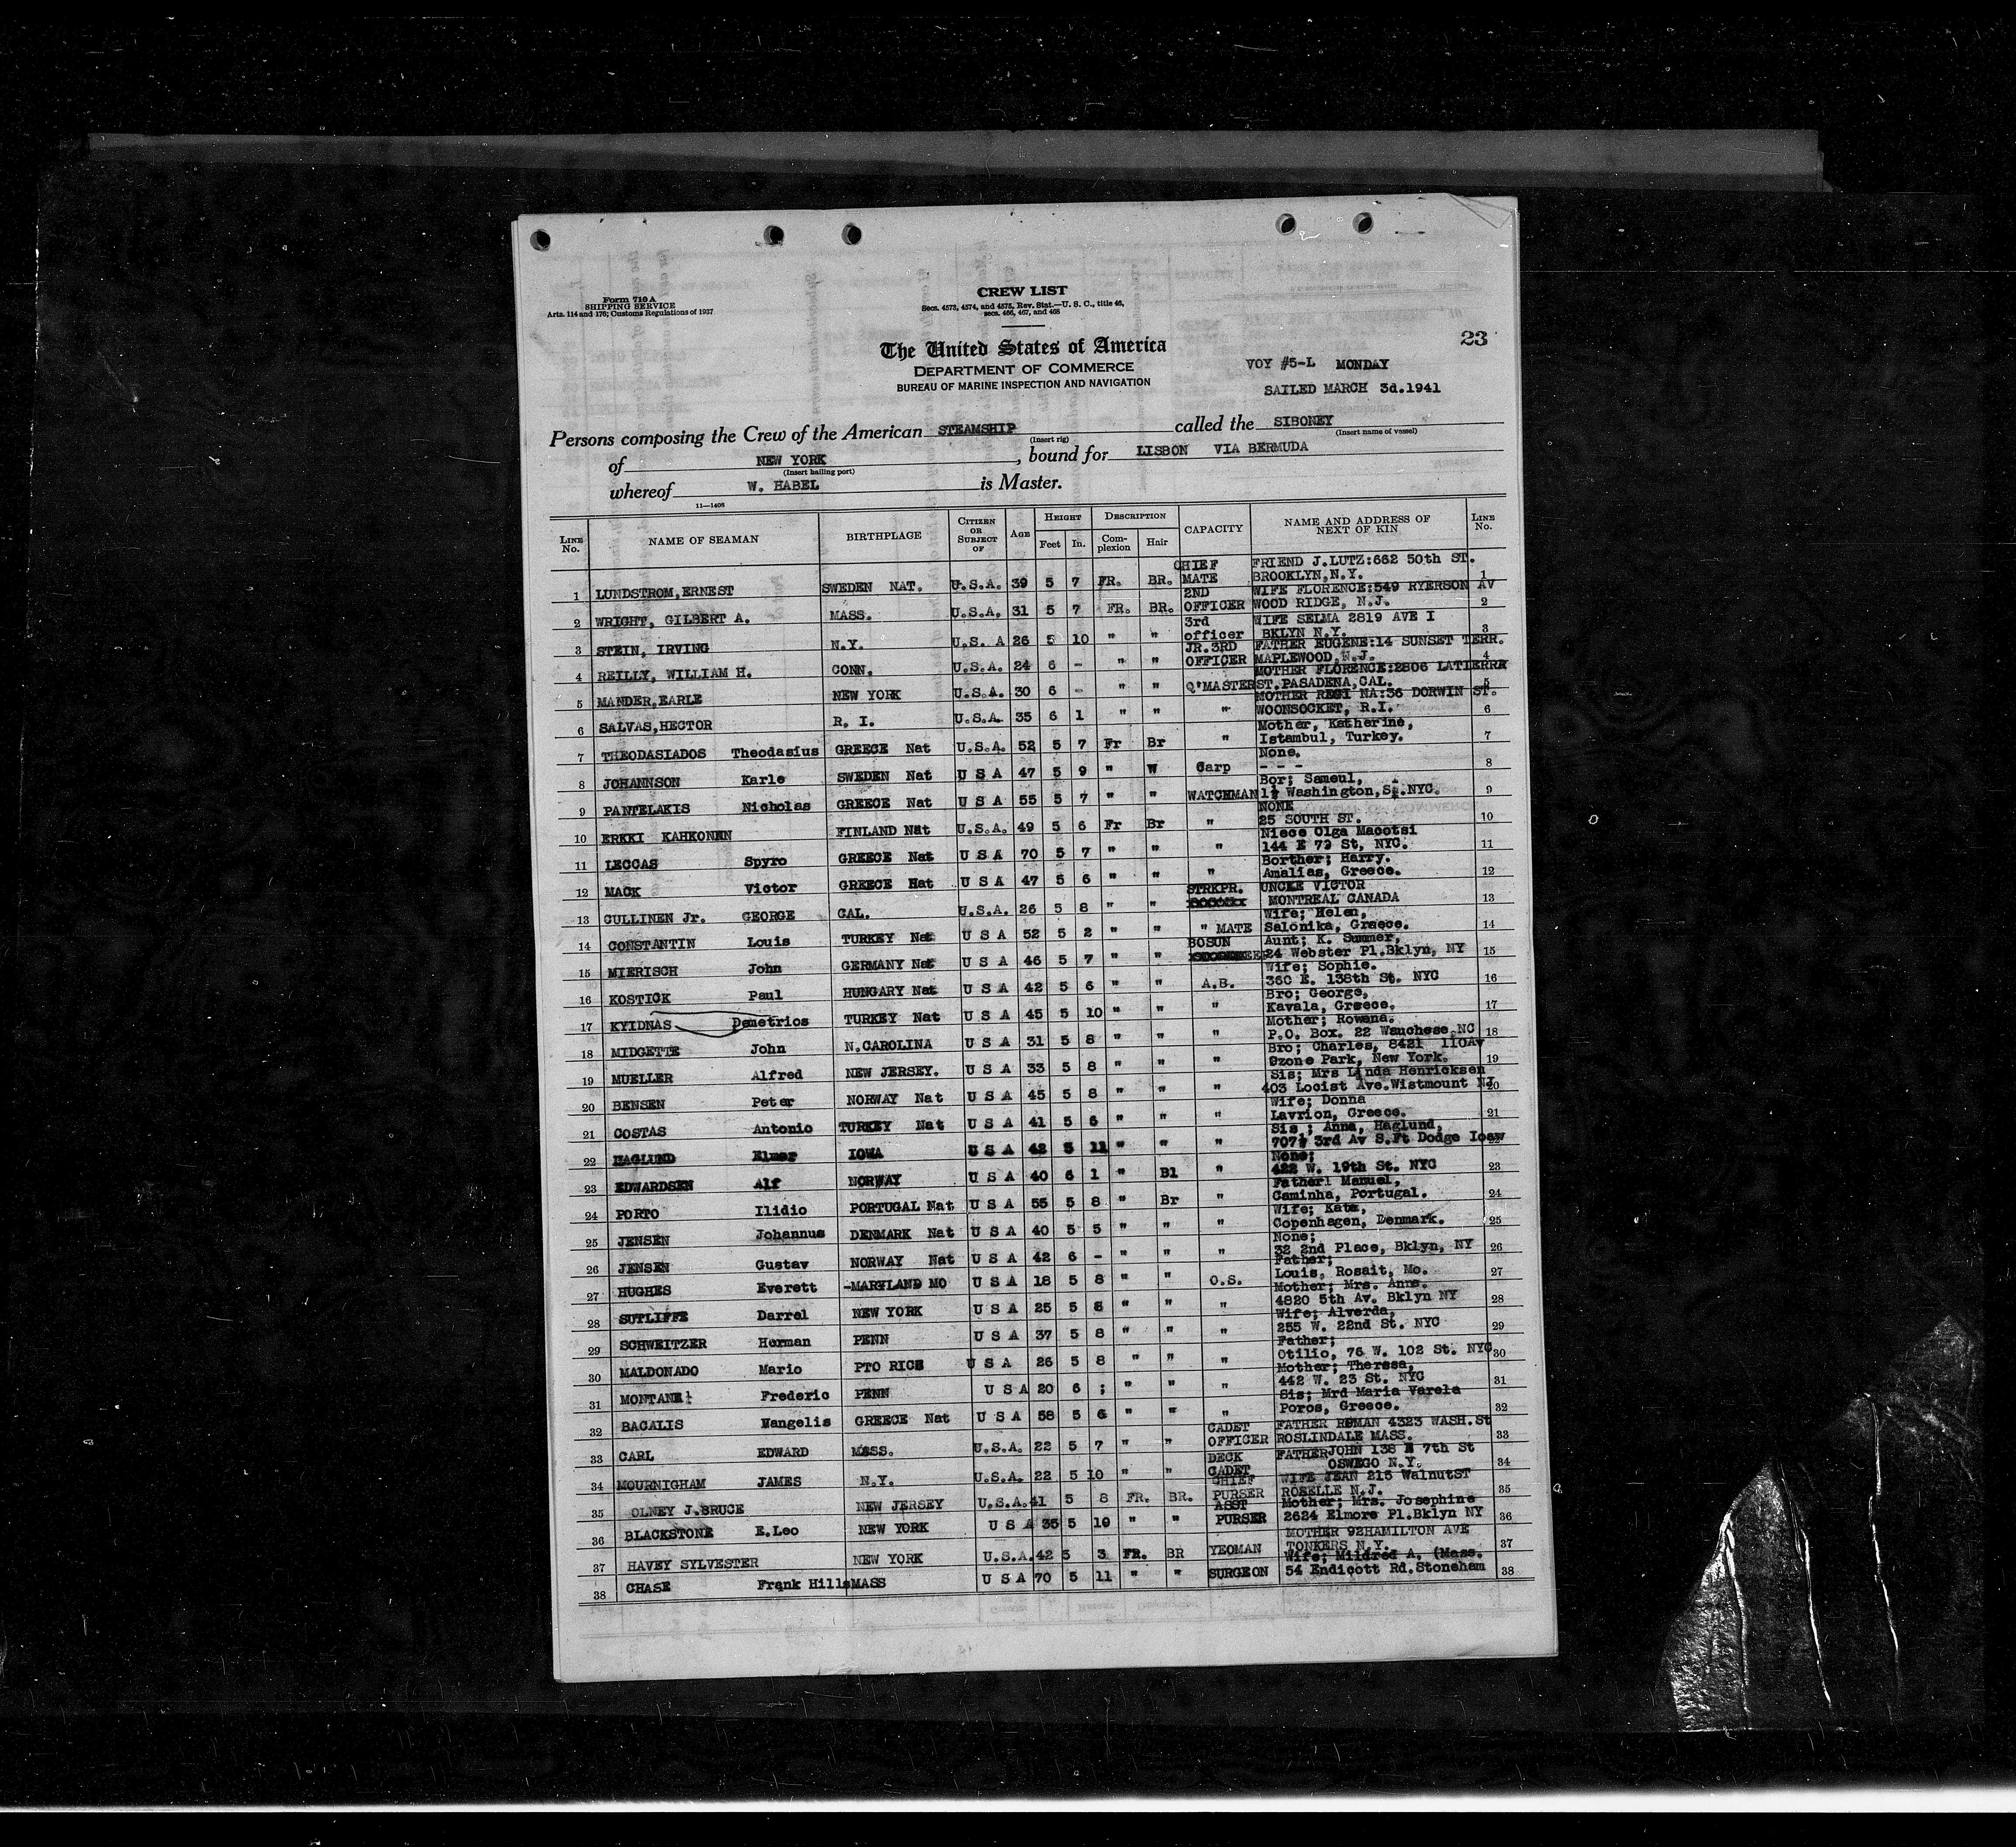 Form 710 A
SHIPPING SERVICE
Arts. 114 and 176; Customs Regulations of 1937
CREW LIST
Secs. 4573, 4574, and 4575, Rev. Stat.—U. S. C., title 46,
secs. 466, 467, and 468
23
The United States of America
DEPARTMENT OF COMMERCE
BUREAU OF MARINE INSPECTION AND NAVIGATION
VOY #5-L MONDAY
SAILED MARCH 3d.1941
Persons composing the Crew of the American STEAMSHIP called the SIBONEY
(Insert rig) (Insert name of vessel)
of NEW YORK, bound for LISBON VIA BERMUDA
(Insert hailing port)
whereof W. HABEL is Master.
11—1408
LINE No. NAME OF SEAMAN BIRTHPLACE CITIZEN OR SUBJECT OF AGE HEIGHT Feet In. DESCRIPTION Complexion Hair CAPACITY NAME AND ADDRESS OF NEXT OF KIN LINE No.
1 LUNDSTROM,ERNEST SWEDEN NAT. U.S.A. 39 5 7 FR. BR. CHIEF MATE FRIEND J.LUTZ:662 50th ST. BROOKLYN,N.Y. 1
2 WRIGHT, GILBERT A. MASS. U.S.A. 31 5 7 FR. BR. 2ND OFFICER WIFE FLORENCE:549 RYERSON AV WOOD RIDGE, N.J. 2
3 STEIN, IRVING N.Y. U.S. A 26 5 10 " " 3rd officer WIFE SELMA 2819 AVE I BKLYN N.Y. 3
4 REILLY, WILLIAM H. CONN. U.S.A. 24 6 - " " JR.3RD OFFICER FATHER EUGENE:14 SUNSET TERR. MAPLEWOOD,N.J. 4
5 MANDER,EARLE NEW YORK U.S.A. 30 6 - " " Q'MASTER MOTHER FLORENCE:2806 LATIERRA ST.PASADENA,CAL. 5
6 SALVAS,HECTOR R. I. U.S.A. 35 6 1 " " " MOTHER REGI NA:36 DORWIN ST. WOONSOCKET, R.I. 6
7 THEODASIADOS Theodasius GREECE Nat U.S.A. 52 5 7 Fr Br " Mother, Katherine, Istambul, Turkey. 7
8 JOHANNSON Karle SWEDEN Nat U S A 47 5 9 " W Carp None. - - - 8
9 PANTELAKIS Nicholas GREECE Nat U S A 55 5 7 " " WATCHMAN Bor; Sameul, Washington,St.NYC. 9
10 ERKKI KAHKONEN FINLAND Nat U.S.A. 49 5 6 Fr Br " NONE 25 SOUTH ST. 10
11 LECCAS Spyro GREECE Nat U S A 70 5 7 " " " Niece Olga Macotsi 144 E 79 St, NYC. 11
12 MACK Victor GREECE Nat U S A 47 5 6 " " " Borther; Harry. Amalias, Greece. 12
13 CULLINEN Jr. GEORGE CAL. U.S.A. 26 5 8 " " STRKPR. UNCLE VICTOR MONTREAL CANADA 13
14 CONSTANTIN Louis TURKEY Nat U S A 52 5 2 " " " MATE Wife; Helen, Salonika, Greece. 14
15 MIERISCH John GERMANY Nat U S A 46 5 7 " " BOSUN Aunt; K. Summer, 24 Webster Pl.Bklyn, NY 15
16 KOSTICK Paul HUNGARY Nat U S A 42 5 6 " " A.B. Wife; Sophie. 360 E. 138th St. NYC 16
17 KYIDNAS Demetrios TURKEY Nat U S A 45 5 10 " " " Bro; George, Kavala, Greece. 17
18 MIDGETTE John N.CAROLINA U S A 31 5 8 " " " Mother; Rowena. P.O. Box. 22 Wanchese NC 18
19 MUELLER Alfred NEW JERSEY. U S A 33 5 8 " " " Bro; Charles, 8421 110Av Ozone Park, New York. 19
20 BENSEN Peter NORWAY Nat U S A 45 5 8 " " " Sis; Mrs Linda Henricksen 403 Locist Ave.Wistmount NJ 20
21 COSTAS Antonio TURKEY Nat U S A 41 5 6 " " " Wife; Donna Lavrion, Greece. 21
22 HAGLUND Elmer IOWA U S A 42 5 11 " " " Sis ; Anna, Haglund, 707½ 3rd Av S.Ft Dodge Ioaw 22
23 EDWARDSEN Alf NORWAY U S A 40 6 1 " Bl " None; 422 W. 19th St. NYC 23
24 PORTO Ilidio PORTUGAL Nat U S A 55 5 8 " Br " Father1 Manuel, Caminha, Portugal. 24
25 JENSEN Johannus DENMARK Nat U S A 40 5 5 " " " Wife; Kate, Copenhagen, Denmark. 25
26 JENSEN Gustav NORWAY Nat U S A 42 6 - " " " None; 32 2nd Place, Bklyn, NY 26
27 HUGHES Everett -MARYLAND MO U S A 18 5 8 " " O.S. Father; Louis, Rosait, Mo. 27
28 SUTLIFFE Darrel NEW YORK U S A 25 5 8 " " " Mother; Mrs. Anna. 4820 5th Av. Bklyn NY 28
29 SCHWEITZER Herman PENN U S A 37 5 8 " " " Wife; Alverda, 255 W. 22nd St. NYC 29
30 MALDONADO Mario PTO RICE U S A 26 5 8 " " " Father; Otilio, 76 W. 102 St. NYC 30
31 MONTANE Frederic PENN U S A 20 6 ; " " " Mother; Theresa, 442 W. 23 St. NYC 31
32 BACALIS Wangelis GREECE Nat U S A 58 5 6 " " " Sis; Mrd Maria Varela Poros, Greece. 32
33 CARL EDWARD MASS. U.S.A. 22 5 7 " " CADET OFFICER FATHER ROMAN 4323 WASH.St ROSLINDALE MASS. 33
34 MOURNIGHAM JAMES N.Y. U.S.A. 22 5 10 " " DECK CADET FATHER JOHN 138 E 7th St OSWEGO N.Y. 34
35 OLNEY J.BRUCE NEW JERSEY U.S.A. 41 5 8 FR. BR. CHIEF PURSER WIFE JEAN 215 WalnutST ROSELLE N.J. 35
36 BLACKSTONE E.Leo NEW YORK U S A 35 5 10 " " ASST PURSER Mother; Mrs. Josephine 2624 Elmore Pl.Bklyn NY 36
37 HAVEY SYLVESTER NEW YORK U.S.A. 42 5 3 FR. BR YEOMAN MOTHER 92HAMILTON AVE TONKERS N.Y. 37
38 CHASE Frank Hills MASS U S A 70 5 11 " " SURGEON Wife; Mildred A, (Mass. 54 Endicott Rd.Stoneham 38